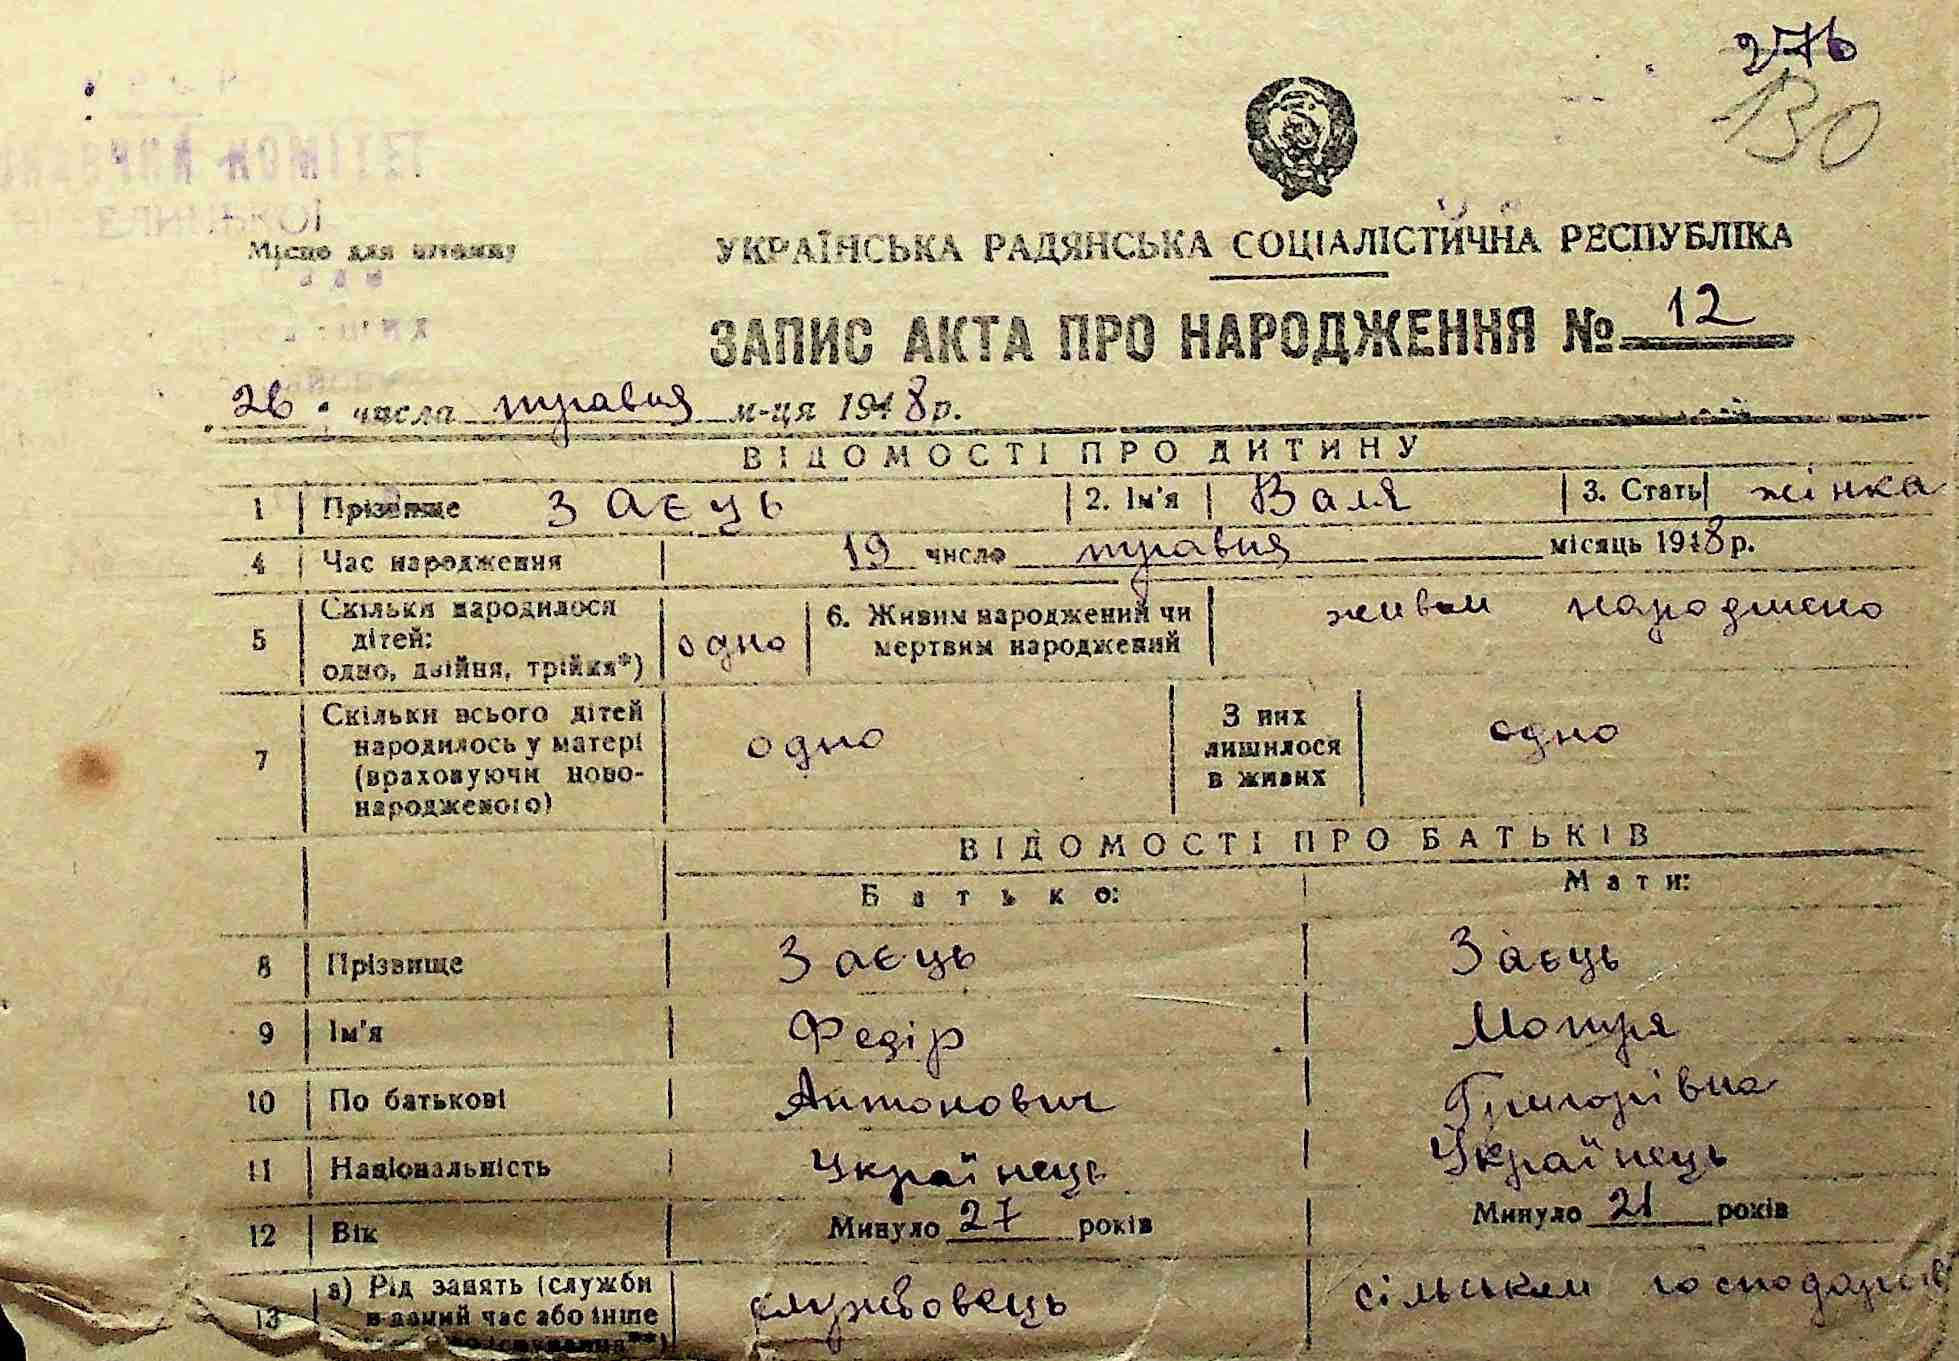 276
130
Місце для штампу
УКРАЇНСЬКА РАДЯНСЬКА СОЦІАЛІСТИЧНА РЕСПУБЛІКА
ЗАПИС АКТА ПРО НАРОДЖЕННЯ № 12
26 числа травня м-ця 1948 р.
ВІДОМОСТІ ПРО ДИТИНУ
1 Прізвище Заєць 2. Ім'я Валя 3. Стать жінка
4 Час народження 19 число травня місяць 1948 р.
5 Скільки народилося дітей: одно, двійня, трійня*) одно 6. Живим народжений чи мертвим народжений живим народжено
7 Скільки всього дітей народилось у матері (враховуючи новонародженого) одно З них лишилося в живих одно
ВІДОМОСТІ ПРО БАТЬКІВ
Батько: Мати:
8 Прізвище Заєць Заєць
9 Ім'я Федір Мотря
10 По батькові Антонович Григорівна
11 Національність Українець Українець
12 Вік Минуло 27 років Минуло 21 років
13 а) Рід занять (служби в даний час або інше службовець сільським господарств